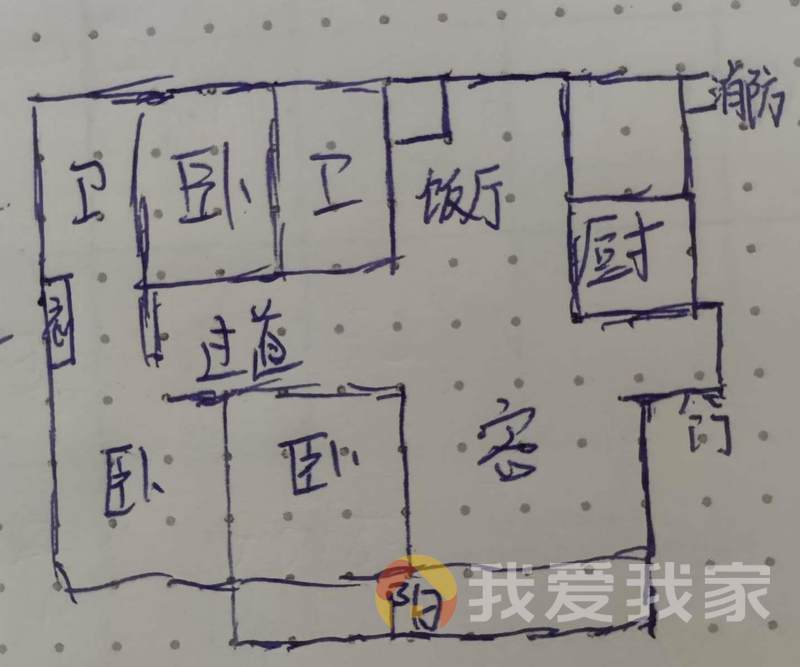 消防
卫
卧
卫
饭厅
厨
衣
过道
门
客
卧
卧
阳
我爱我家